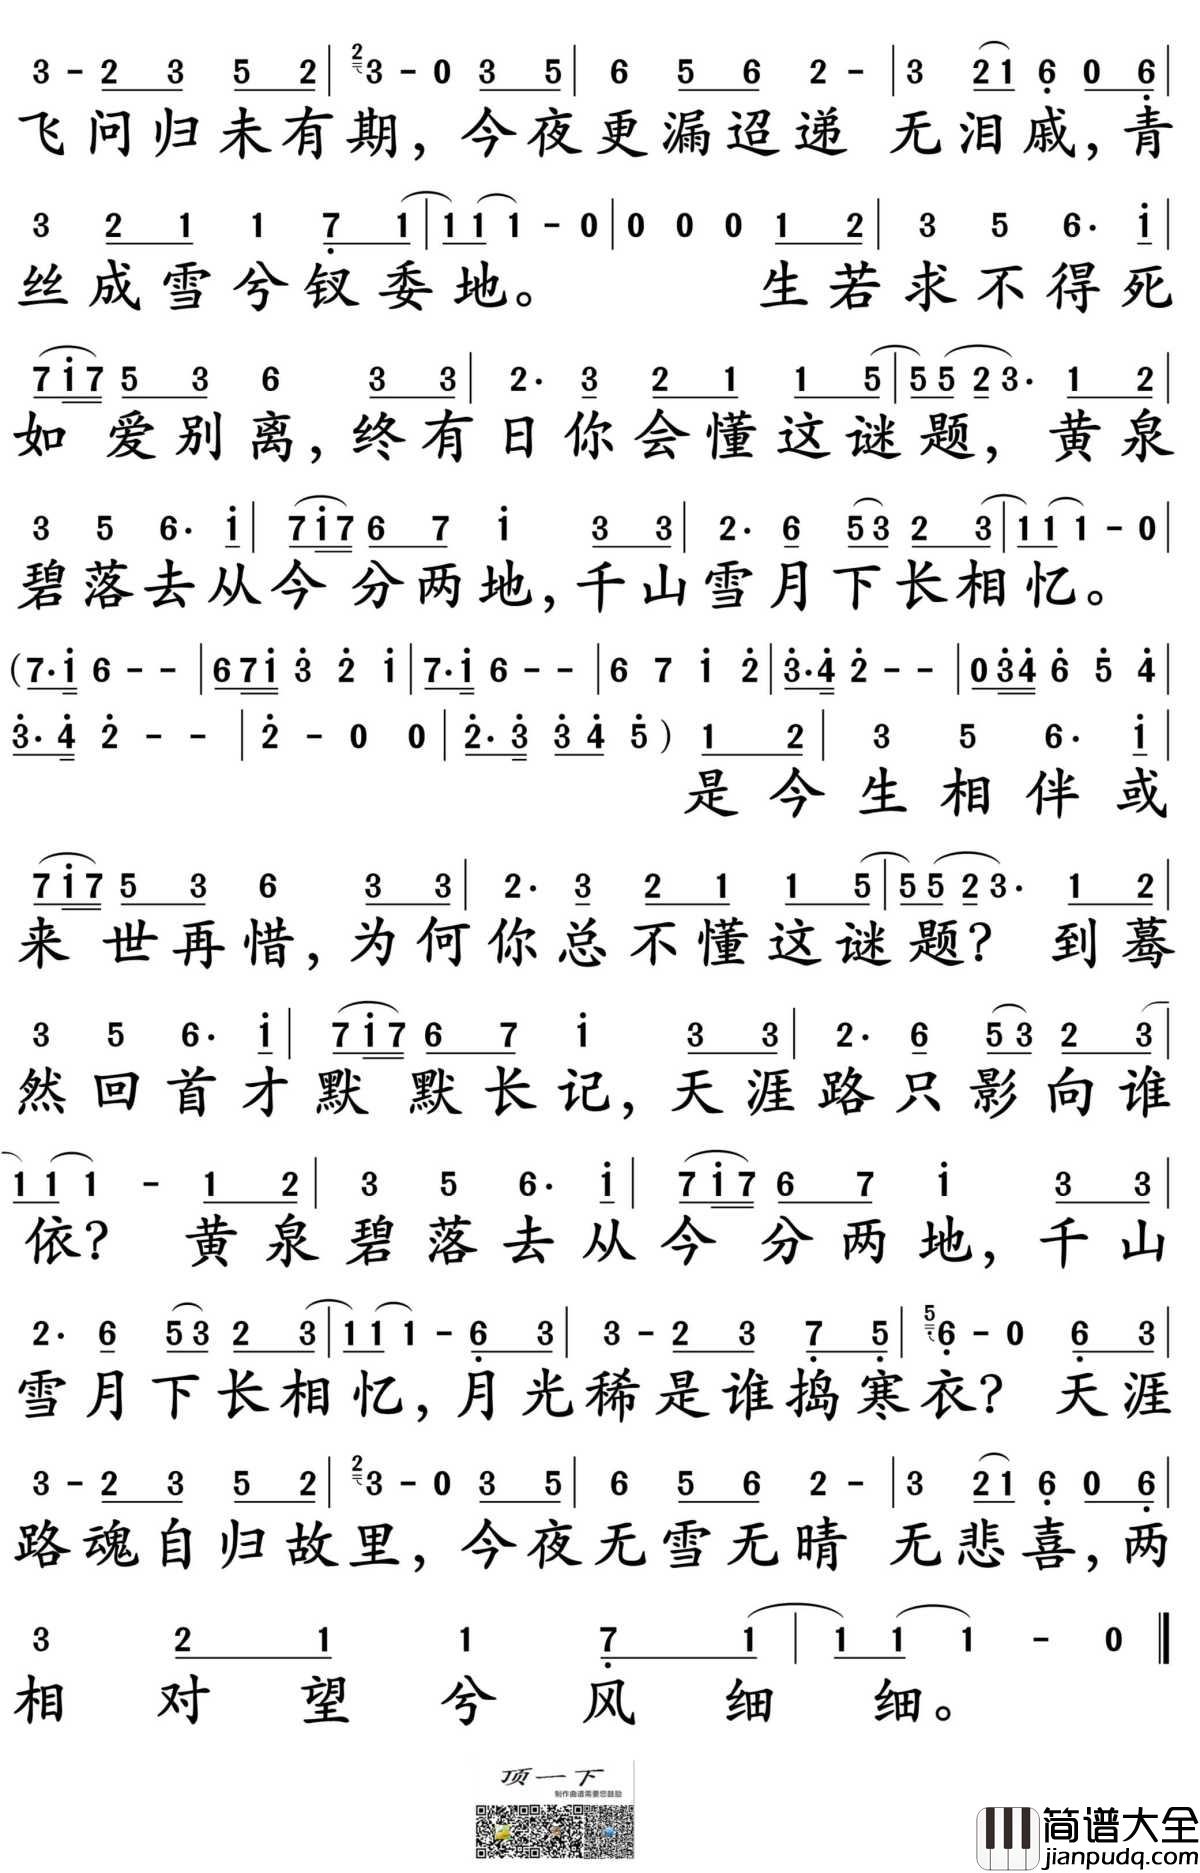 3 - 2 3 5 2 | 2 3 - 0 3 5 | 6 5 6 2 - | 3 2 1 6 0 6 |
飞问归未有期，今夜更漏迢递 无泪戚，青
3 2 1 1 7 1 | 1 1 1 - 0 | 0 0 0 1 2 | 3 5 6· i |
丝成雪兮钗委地。 生若求不得死
7 i 7 5 3 6 3 3 | 2· 3 2 1 1 5 | 5 5 2 3· 1 2 |
如 爱别离，终有日你会懂这谜题，黄泉
3 5 6· i | 7 i 7 6 7 i 3 3 | 2· 6 5 3 2 3 | 1 1 1 - 0 |
碧落去从今 分两地，千山雪月下长相忆。
( 7· i 6 - - | 6 7 i 3 2 i | 7· i 6 - - | 6 7 i 2 | 3· 4 2 - - | 0 3 4 6 5 4 |
3· 4 2 - - | 2 - 0 0 | 2· 3 3 4 5 ) 1 2 | 3 5 6· i |
是今生相伴或
7 i 7 5 3 6 3 3 | 2· 3 2 1 1 5 | 5 5 2 3· 1 2 |
来 世再惜，为何你总不懂这谜题？ 到蓦
3 5 6· i | 7 i 7 6 7 i 3 3 | 2· 6 5 3 2 3 |
然回首才默 默长记，天涯路只影向谁
1 1 1 - 1 2 | 3 5 6· i | 7 i 7 6 7 i 3 3 |
依？ 黄泉碧落去从今 分两地，千山
2· 6 5 3 2 3 | 1 1 1 - 6 3 | 3 - 2 3 7 5 | 5 6 - 0 6 3 |
雪月下长相忆，月光稀是谁捣寒衣？ 天涯
3 - 2 3 5 2 | 2 3 - 0 3 5 | 6 5 6 2 - | 3 2 1 6 0 6 |
路魂自归故里，今夜无雪无晴 无悲喜，两
3 2 1 1 7 1 | 1 1 1 - 0 ‖
相对望兮风细细。
顶一下
制作曲谱需要您鼓励
简谱大全
jianpudq.com